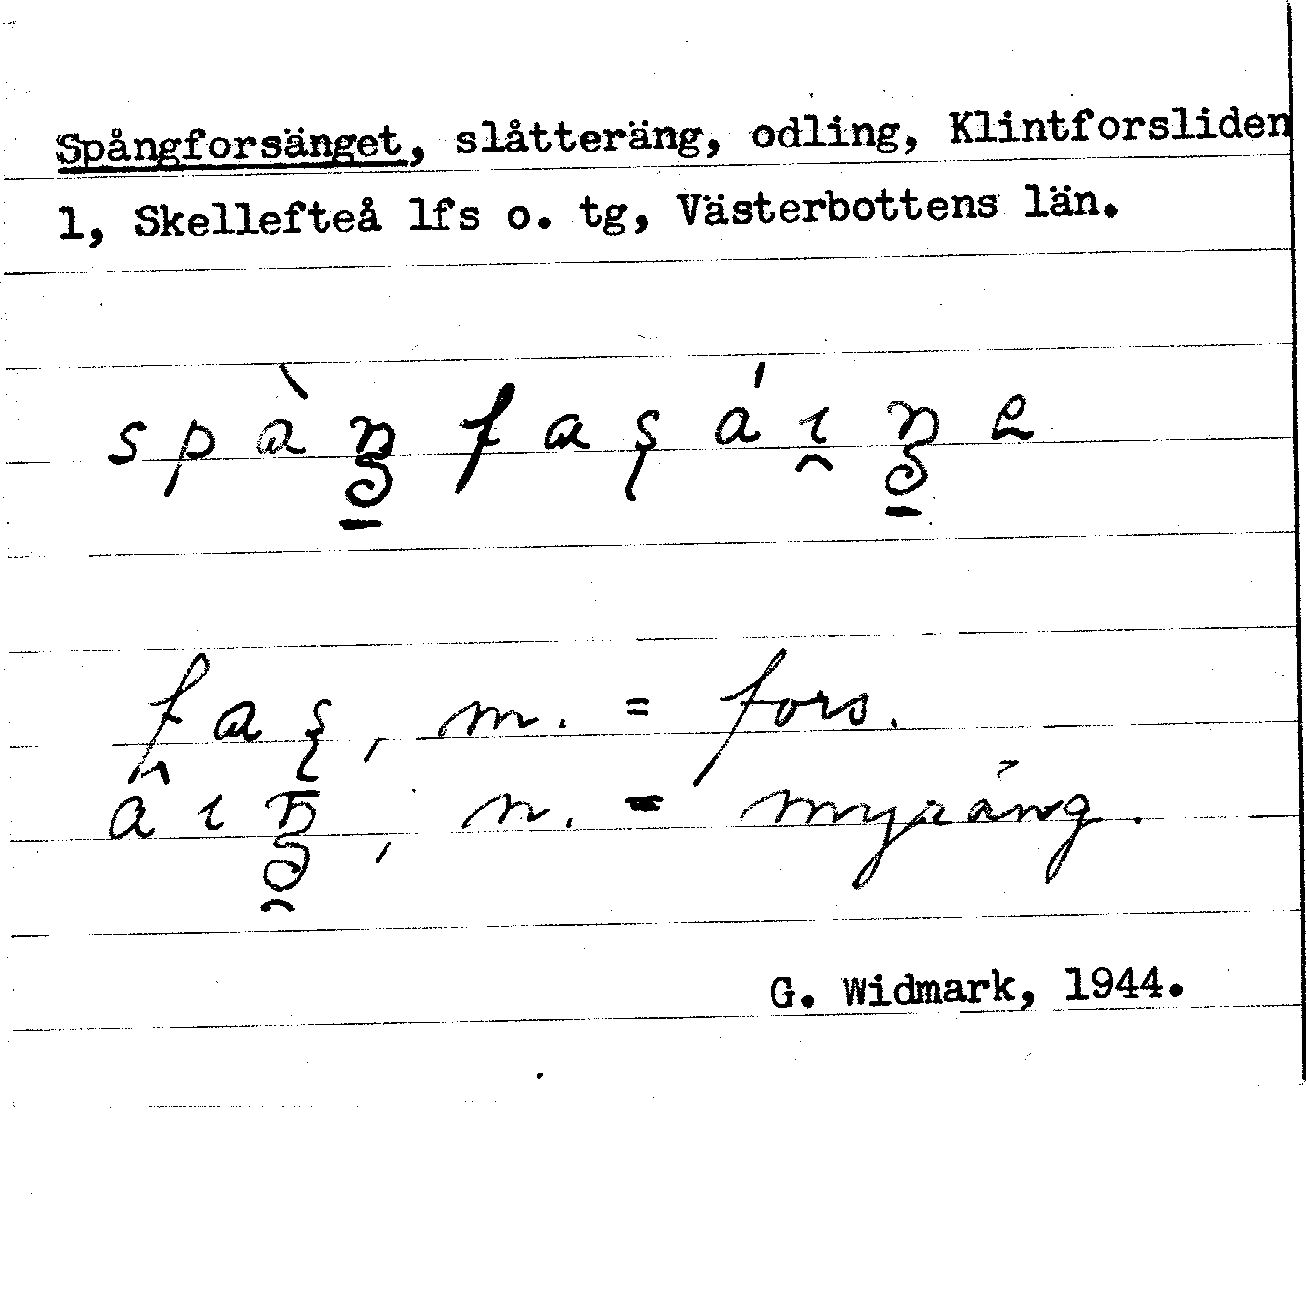 Spångforsänget, slåtteräng, odling, Klintforsliden
1, Skellefteå lfs o. tg, Västerbottens län.
m. = fors.
n. = myräng.
G. Widmark, 1944.